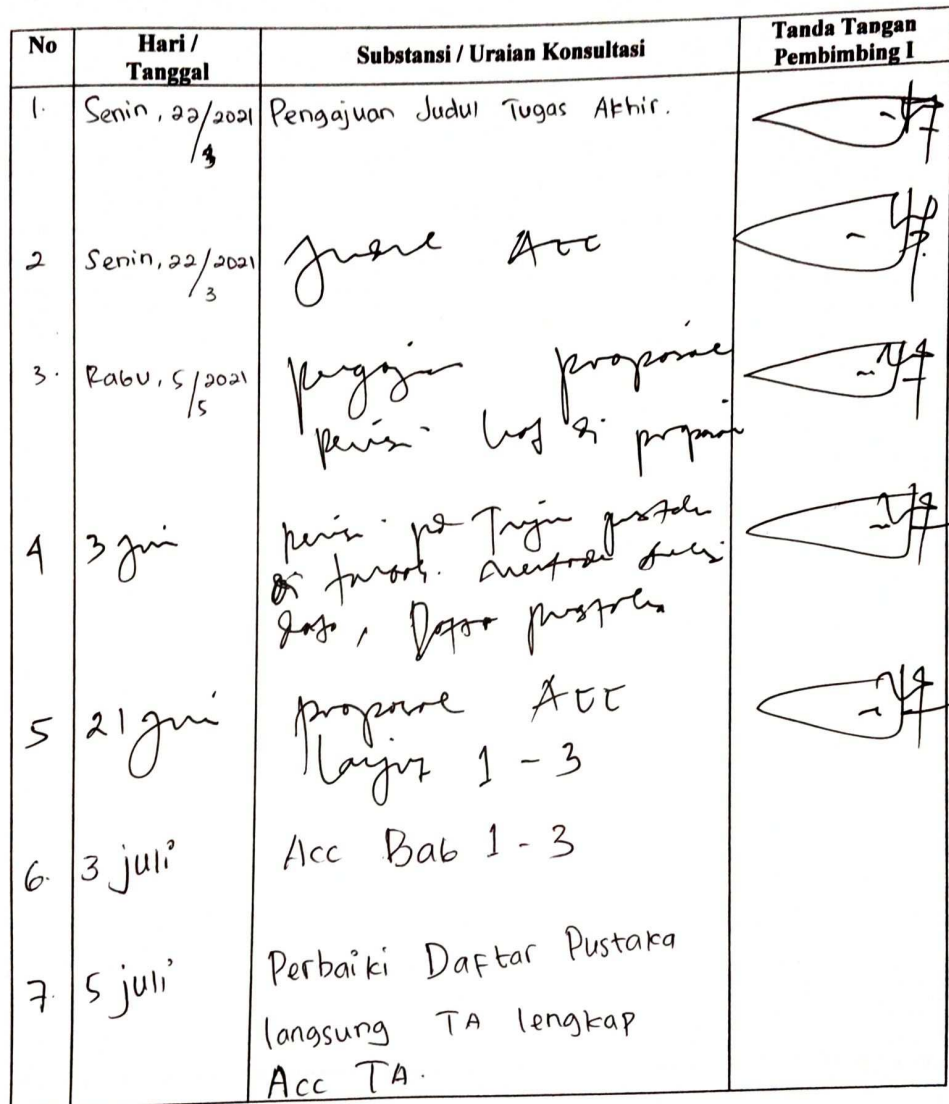 No Hari / Tanggal Substansi / Uraian Konsultasi Tanda Tangan Pembimbing I
1. Senin, 22/3/2021 Pengajuan Judul Tugas Akhir.
2 Senin, 22/3/2021 Acc
3. Rabu, 5/5/2021 proposal
revisi
4 3 juni revisi
Daftar pustaka
5 21 juni proposal Acc
lanjut 1 - 3
6. 3 juli Acc Bab 1 - 3
7. 5 juli Perbaiki Daftar Pustaka
langsung TA lengkap
Acc TA.